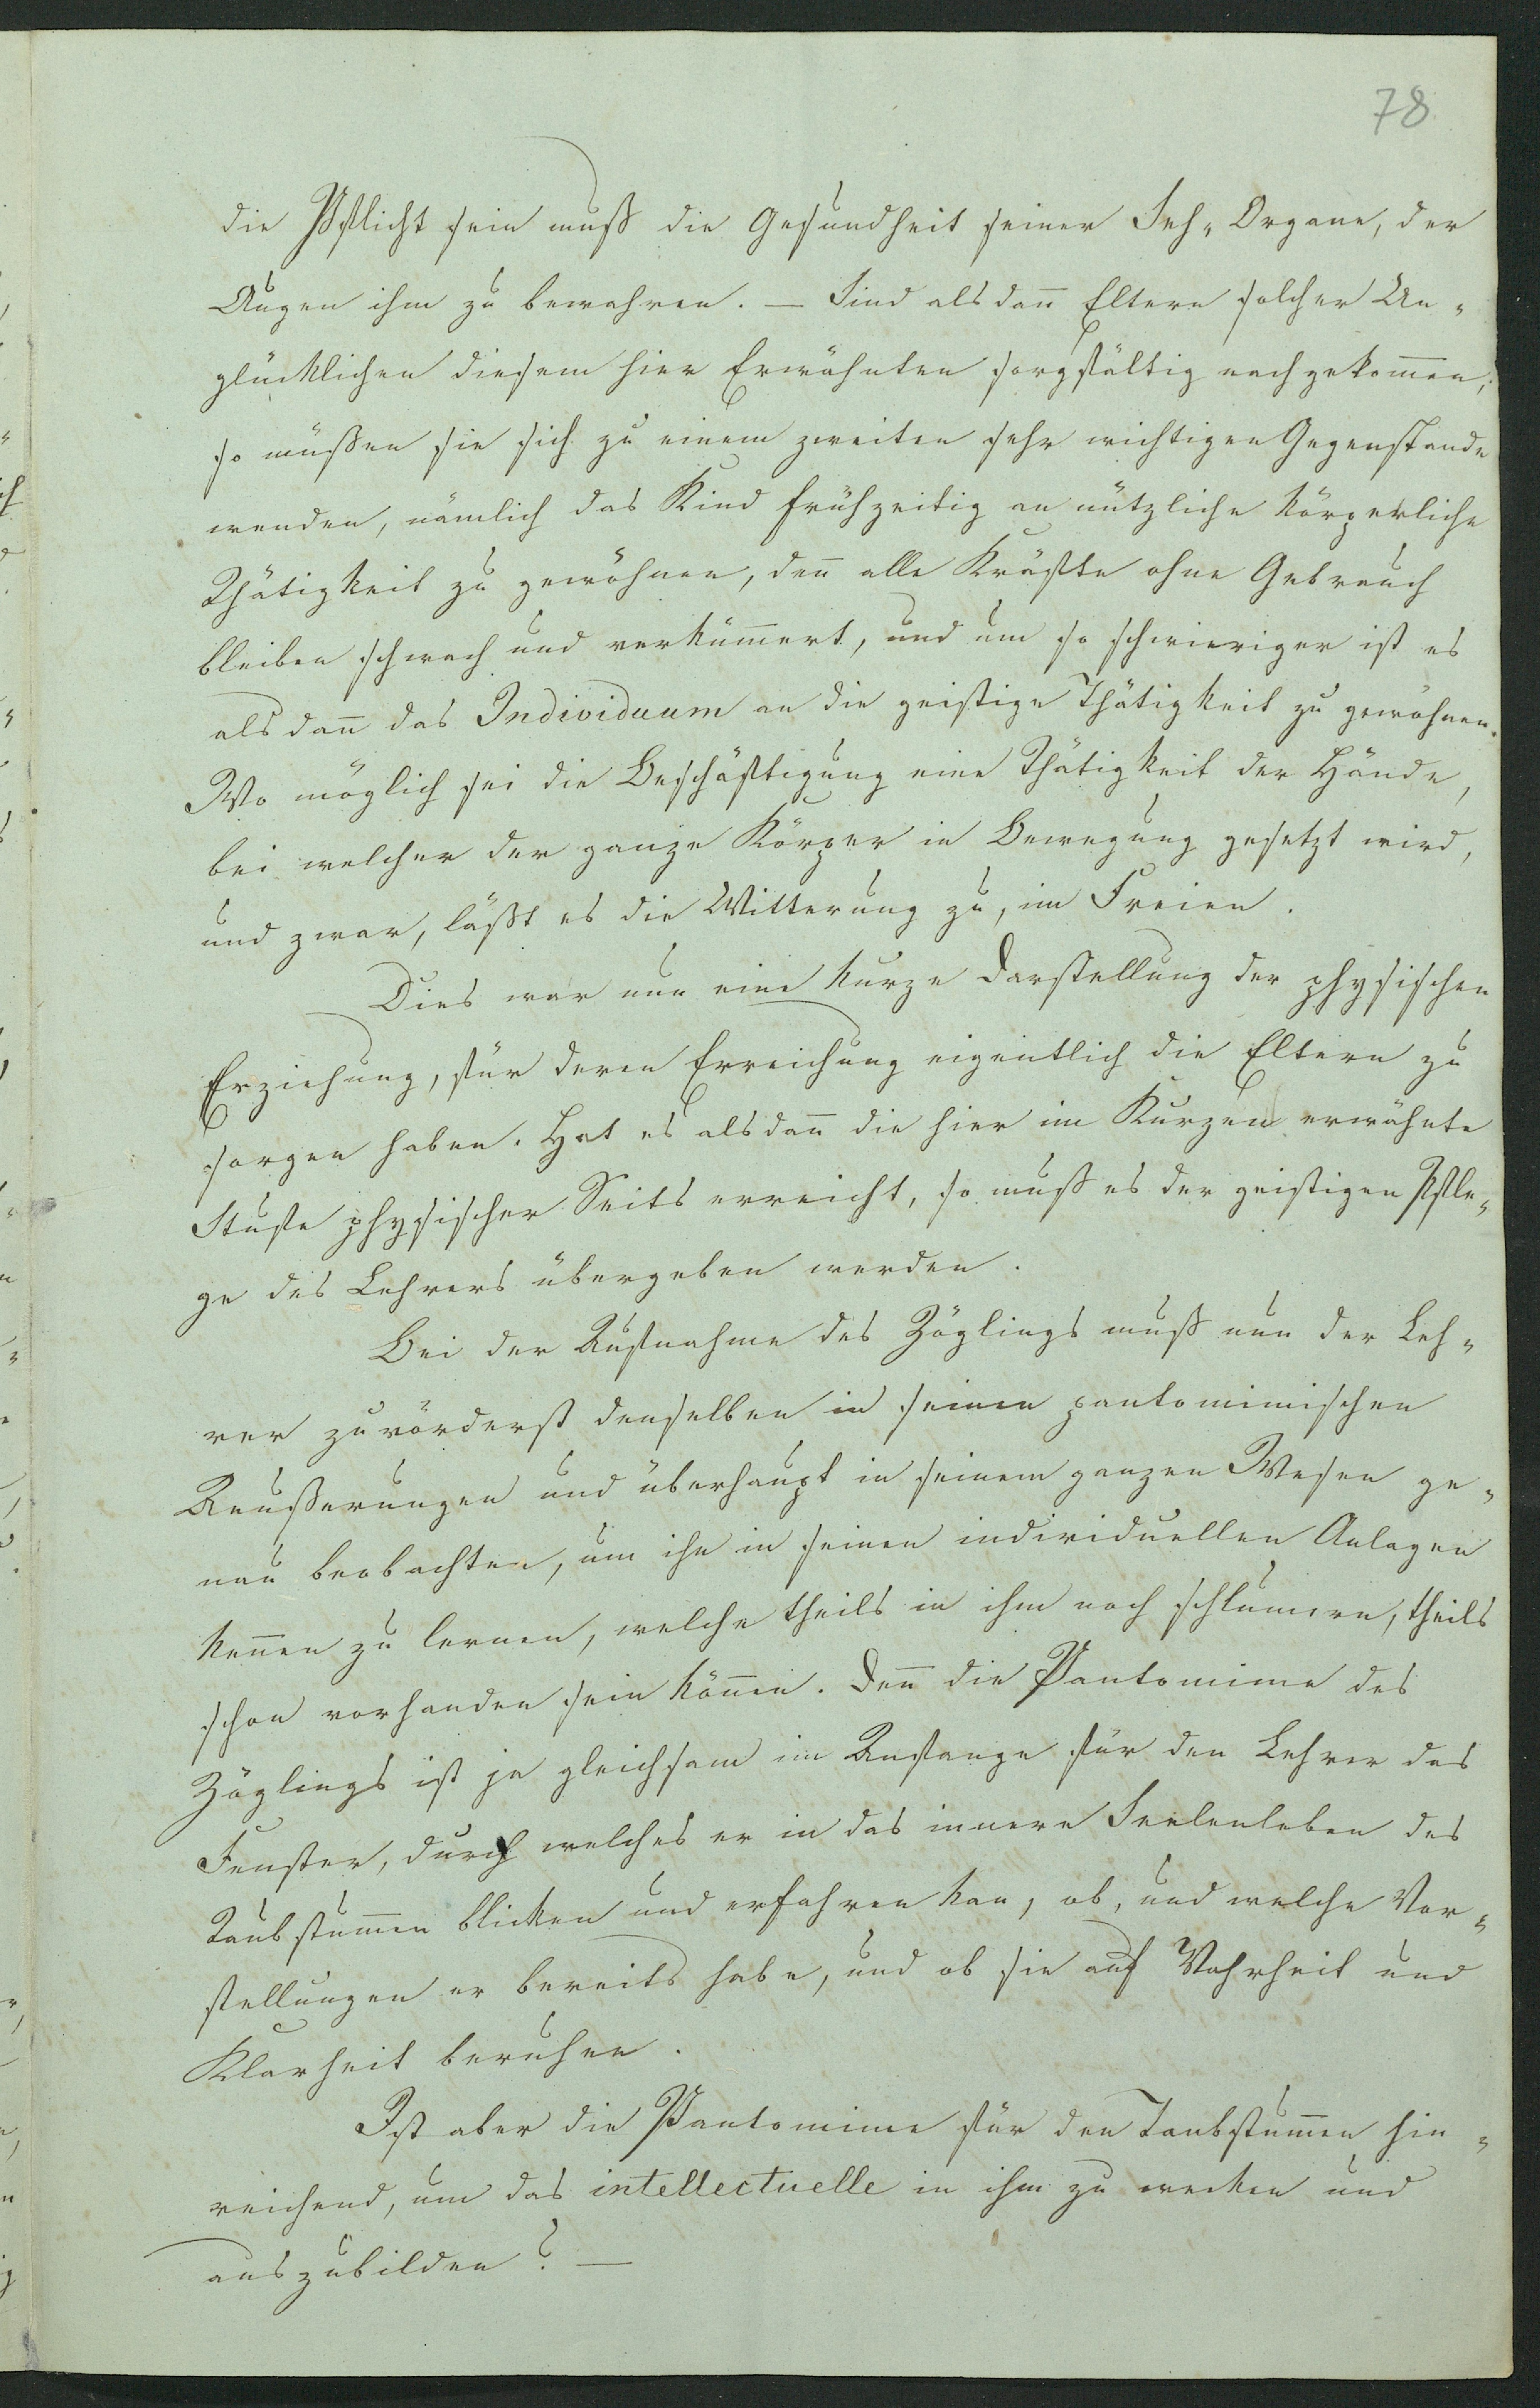 78
die Pflicht sein muß die Gesundheit seiner Seh-Organe, der
Augen ihm zu bewahren. — Sind alsdan̅ Eltern solcher Un-
glücklichen diesem hier Erwähnten sorgfältig nachgekom̅en;
so müßen sie sich zu einem zweiten sehr wichtigen Gegenstande
wenden, nämlich das Kind frühzeitig an nützliche körperliche
Thätigkeit zu gewöhnen, den̅ alle Kräfte ohne Gebrauch
bleiben schwach und verküm̅ert, und um so schwieriger ist es
alsdan̅ das Individuum an die geistige Thätigkeit zu gewöhnen.
Wo möglich sei die Beschäftigung eine Thätigkeit der Hände,
bei welcher der ganze Körper in Bewegung gesetzt wird,
und zwar, läßt es die Witterung zu, im Freien.
Dies war nun eine kurze Darstellung der physischen
Erziehung, für deren Erreichung eigentlich die Eltern zu
sorgen haben. Hat es alsdan̅ die hier im Kurzen erwähnte
Stufe physischer Seits erreicht, so muß es der geistigen Pfle-
ge des Lehrers übergeben werden.
Bei der Aufnahme des Zöglings muß nun der Leh-
rer zuvörderst denselben in seinen pantomimischen
Aeußerungen und überhaupt in seinem ganzen Wesen ge-
nau beobachten, um ihn in seinen individuellen Anlagen
ken̅en zu lernen, welche theils in ihm noch schlum̅ern, theils
schon vorhanden sein kön̅en. Den̅ die Pantomime des
Zöglings ist ja gleichsam im Anfange für den Lehrer das
Fenster, durch welches er in das innere Seelenleben des
Taubstum̅en blicken und erfahren kan, ob, und welche Vor-
stellungen er bereits habe, und ob sie auf Wahrheit und
Klarheit beruhen.
Ist aber die Pantomime für den Taubstum̅en hin-
reichend, um das intellectuelle in ihm zu wecken und
auszubilden? —